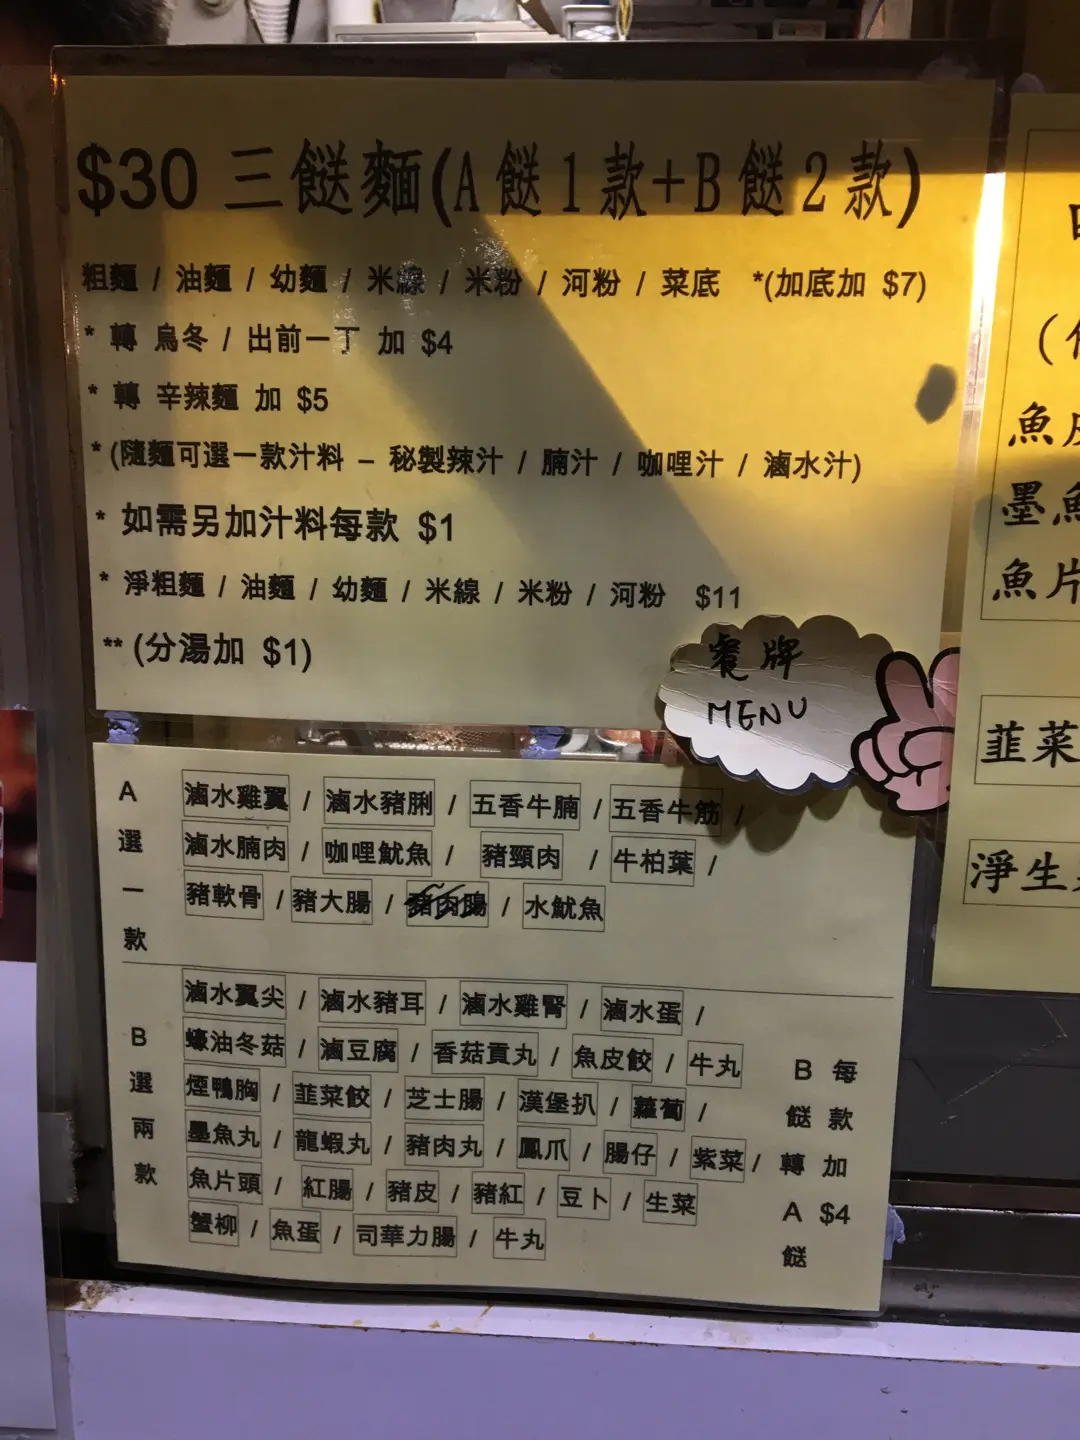 $30 三餸麵(A餸1款+B餸2款)
粗麵 / 油麵 / 幼麵 / 米線 / 米粉 / 河粉 / 菜底 *(加底加 $7)
* 轉 烏冬 / 出前一丁 加 $4
* 轉 辛辣麵 加 $5
* (隨麵可選一款汁料 – 秘製辣汁 / 腩汁 / 咖哩汁 / 滷水汁)
* 如需另加汁料每款 $1
* 淨粗麵 / 油麵 / 幼麵 / 米線 / 米粉 / 河粉 $11
** (分湯加 $1)
餐牌
MENU
A選一款
滷水雞翼 / 滷水豬脷 / 五香牛腩 / 五香牛筋 /
滷水腩肉 / 咖哩魷魚 / 豬頸肉 / 牛柏葉 /
豬軟骨 / 豬大腸 / 豬肉腸 / 水魷魚
B選兩款
滷水翼尖 / 滷水豬耳 / 滷水雞腎 / 滷水蛋 /
蠔油冬菇 / 滷豆腐 / 香菇貢丸 / 魚皮餃 / 牛丸
煙鴨胸 / 韮菜餃 / 芝士腸 / 漢堡扒 / 蘿蔔 /
墨魚丸 / 龍蝦丸 / 豬肉丸 / 鳳爪 / 腸仔 / 紫菜 /
魚片頭 / 紅腸 / 豬皮 / 豬紅 / 豆卜 / 生菜
蟹柳 / 魚蛋 / 司華力腸 / 牛丸
B餸轉A餸
每款加$4
魚
墨魚
魚片
韮菜
淨生